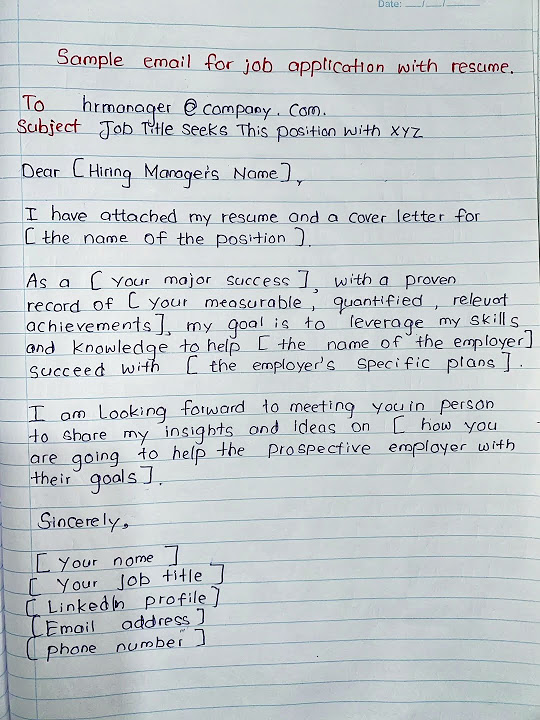 Date: __/__/____
Sample email for job application with resume.
To hrmanager @ company. Com.
Subject Job Title Seeks This position with XYZ
Dear [Hiring Manager's Name],
I have attached my resume and a cover letter for
[ the name of the position ].
As a [ your major success ], with a proven
record of [ your measurable, quantified, relevat
achievements], my goal is to leverage my skills
and knowledge to help [ the name of the employer]
succeed with [ the employer's specific plans ].
I am Looking forward to meeting you in person
to share my insights and Ideas on [ how you
are going to help the prospective employer with
their goals].
Sincerely,
[ Your name ]
[ Your Job title ]
[ LinkedIn profile]
[Email address]
[ phone number ]